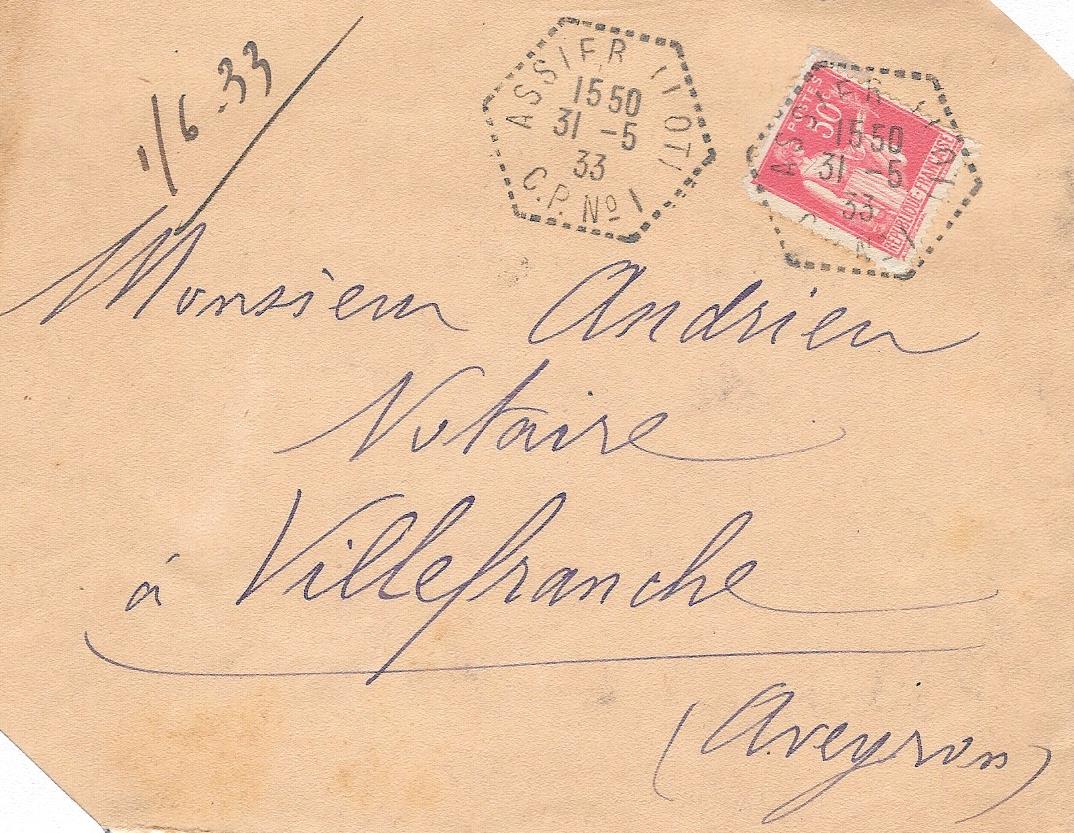 1/6 - 33
ASSIER (LOT)
15 50
31 -5
33
C.P. No 1
POSTES
50c
REPUBLIQUE-FRANÇAISE
15 50
31 -5
33
Monsieur Andrieu
Notaire
à Villefranche
(Aveyron)